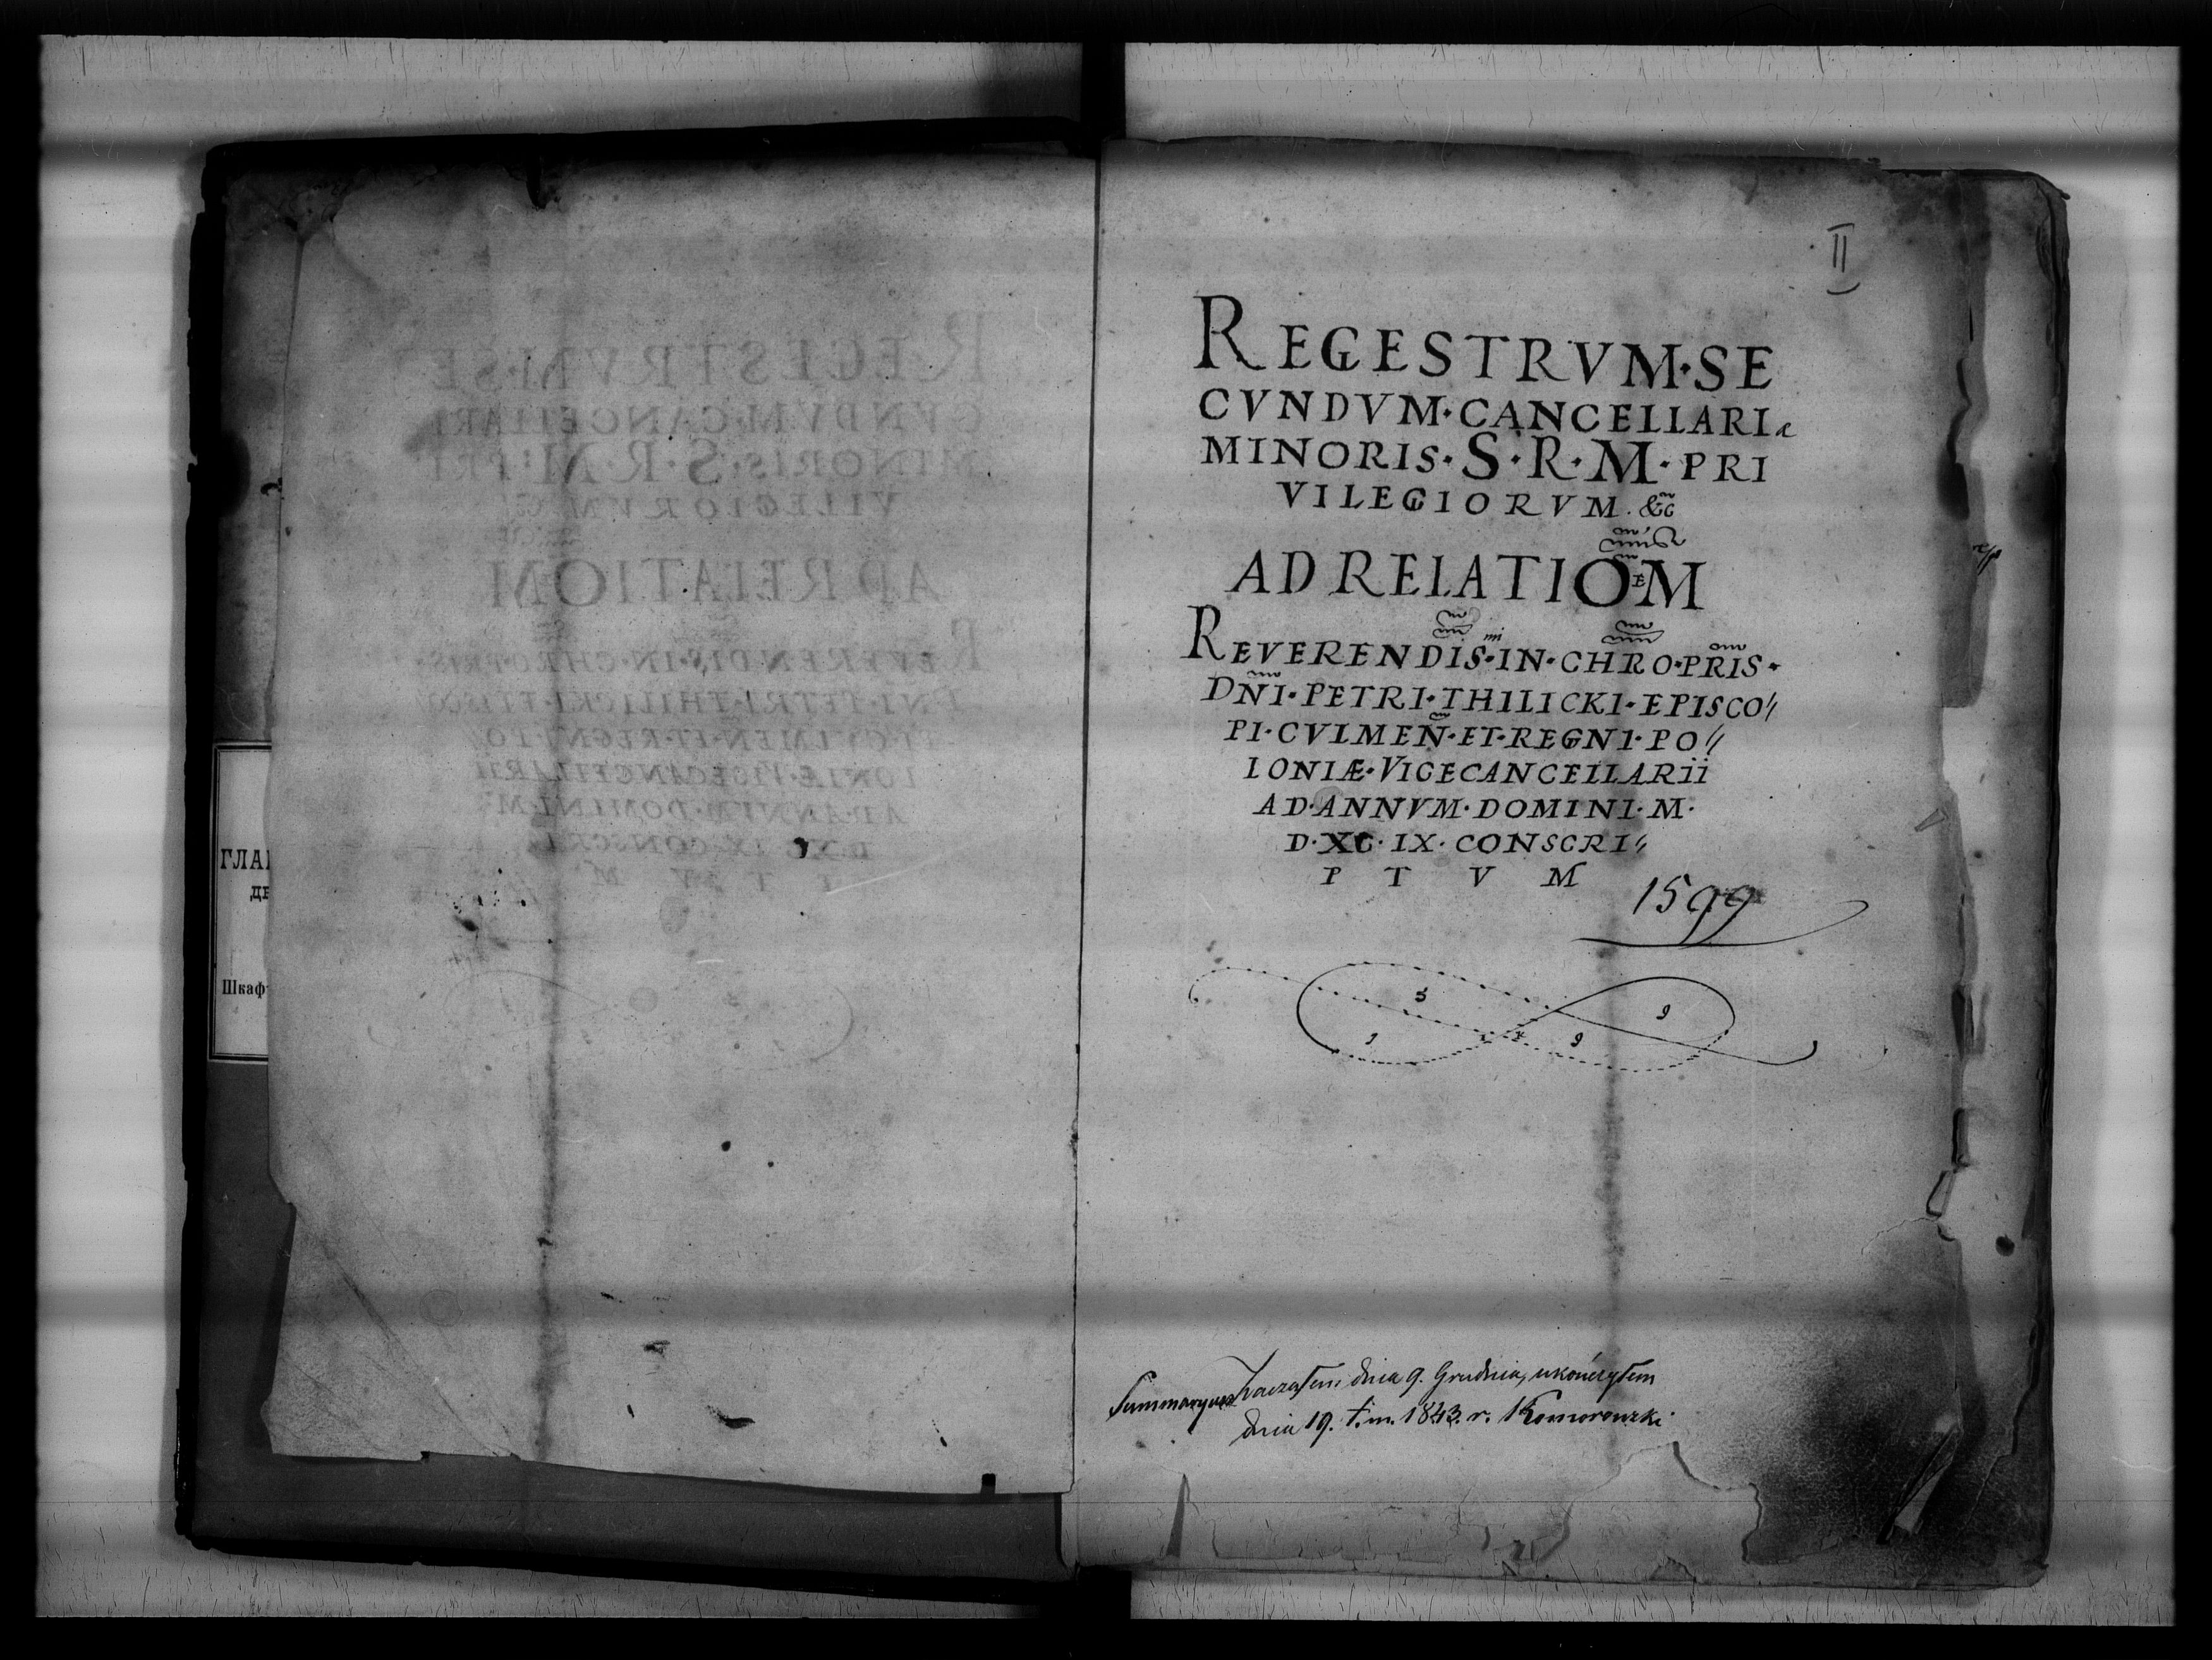 ГЛА
ДЕ
Шкаф
II
REGESTRVM·SE
CVNDVM·CANCELLARIæ
MINORIS·S·R·M·PRI
VILEGIORVM. &c̃
AD RELATIOEM
REVERENDIS·IN·CHRO·PRIS·
DNI·PETRI·THILICKI·EPISCO//
PI·CVLMEÑ·ET·REGNI·PO//
LONIÆ·VICECANCELLARii
AD·ANNVM·DOMINI·M·
D·XC·IX·CONSCRI//
P T V M
1599
5 9
1 9
Summaryusz zacząłem dnia 9. Grudnia, ukończyłem
dnia 19. t. m. 1843. r. Komorowski